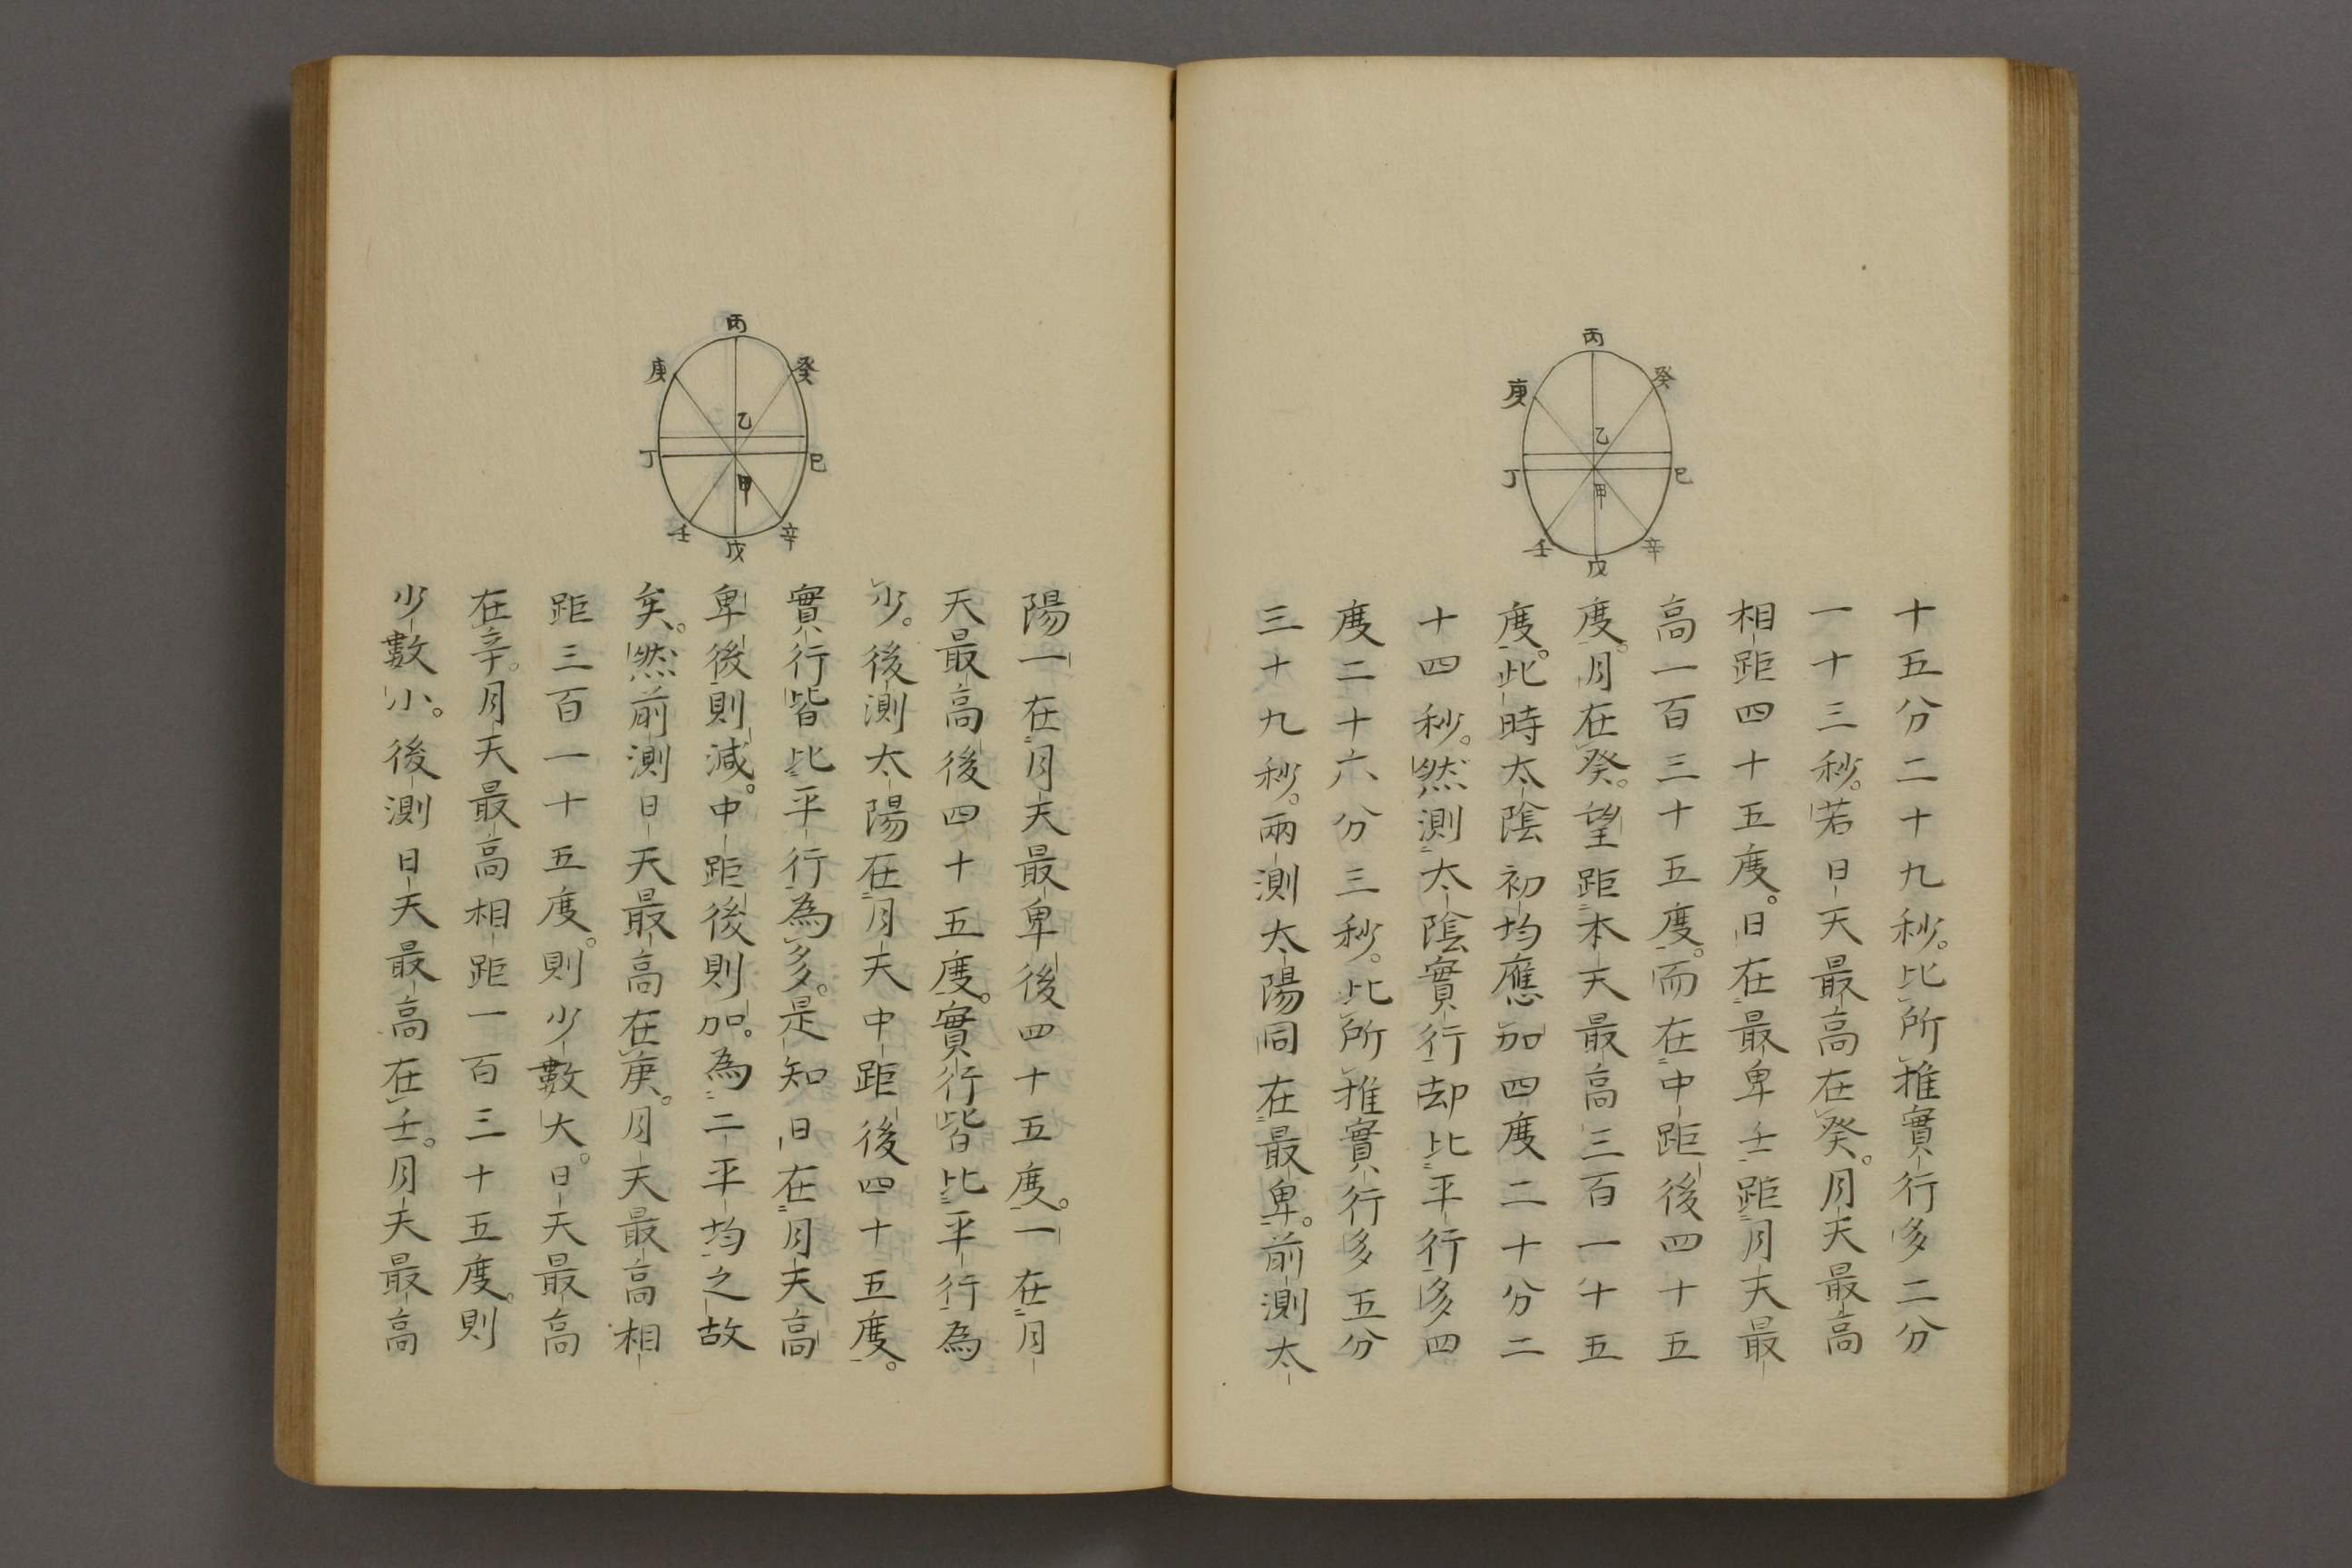 丙
庚
癸
乙
丁
巳
甲
壬
辛
戊
十五分二十九秒。比所推實行多二分
一十三秒。若日天最高在癸。月天最高
相距四十五度。日在最卑壬距月天最
高一百三十五度。而在中距後四十五
度。月在癸。望距本天最高三百一十五
度。此時太陰初均應加四度二十分二
十四秒。然測太陰實行却比平行多四
度二十六分三秒。比所推實行多五分
三十九秒。兩測太陽同在最卑。前測太
丙
庚
癸
乙
丁
巳
甲
壬
辛
戊
陽一在月天最卑後四十五度。一在月
天最高後四十五度。實行皆比平行為
少。後測太陽在月天中距後四十五度。
實行皆比平行為多。是知日在月天高
卑後則減。中距後則加。為二平均之故
矣。然前測日天最高在庚。月天最高相
距三百一十五度。則少數大。日天最高
在辛。月天最高相距一百三十五度。則
少數小。後測日天最高在壬。月天最高